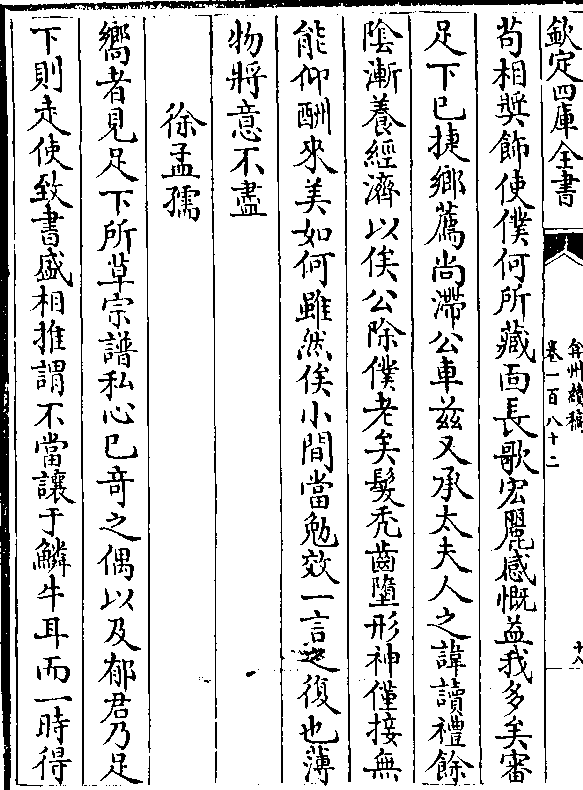 欽定四庫全書
弇州續稿
卷一百八十二
十八
苟相奨飾使僕何所藏面長歌宏麗感慨益我多矣審
足下已捷鄉薦尚滯公車兹又承太夫人之諱讀禮餘
陰漸養經濟以俟公除僕老矣髮禿齒墮形神僅接無
能仰酬來美如何雖然俟小間當勉效一言之復也薄
物將意不盡
徐孟孺
嚮者見足下所草宗譜私心已竒之偶以及郁君乃足
下則走使致書盛相推謂不當讓于鱗牛耳而一時得